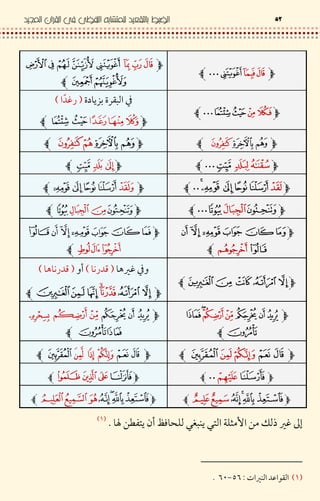 ٥٢ الضبط بالتقعيد للمتشابه اللفظي في القرآن المجيد
﴿ قَالَ فَبِمَآ أَغْوَيْتَنِى ... ﴾
﴿ قَالَ رَبِّ بِمَآ أَغْوَيْتَنِى لَأُزَيِّنَنَّ لَهُمْ فِى ٱلْأَرْضِ
وَلَأُغْوِيَنَّهُمْ أَجْمَعِينَ ﴾
﴿ فَكُلَا مِنْ حَيْثُ شِئْتُمَا ... ﴾
في البقرة بزيادة ( رغدًا )
﴿ وَكُلَا مِنْهَا رَغَدًا حَيْثُ شِئْتُمَا ﴾
﴿ وَهُم بِٱلْءَاخِرَةِ كَٰفِرُونَ ﴾
﴿ وَهُم بِٱلْءَاخِرَةِ هُمْ كَٰفِرُونَ ﴾
﴿ سُقْنَٰهُ لِبَلَدٍ مَّيِّتٍ ... ﴾
﴿ إِلَىٰ بَلَدٍ مَّيِّتٍ ﴾
﴿ لَقَدْ أَرْسَلْنَا نُوحًا إِلَىٰ قَوْمِهِۦ .. ﴾
﴿ وَلَقَدْ أَرْسَلْنَا نُوحًا إِلَىٰ قَوْمِهِۦ ﴾
﴿ وَتَنْحِتُونَ ٱلْجِبَالَ بُيُوتًا ... ﴾
﴿ وَتَنْحِتُونَ مِنَ ٱلْجِبَالِ بُيُوتًا ﴾
﴿ وَمَا كَانَ جَوَابَ قَوْمِهِۦٓ إِلَّآ أَن
قَالُوٓا۟ أَخْرِجُوهُم ﴾
﴿ فَمَا كَانَ جَوَابَ قَوْمِهِۦٓ إِلَّآ أَن قَالُوٓا۟
أَخْرِجُوٓا۟ ءَالَ لُوطٍ ﴾
﴿ إِلَّا ٱمْرَأَتَهُۥ كَانَتْ مِنَ ٱلْغَٰبِرِينَ ﴾
وفي غيرها ( قدرنا ) أو ( قدرناها )
﴿ إِلَّا ٱمْرَأَتَهُۥ قَدَّرْنَآ إِنَّهَا لَمِنَ ٱلْغَٰبِرِينَ ﴾
﴿ يُرِيدُ أَن يُخْرِجَكُم مِّنْ أَرْضِكُمْ فَمَاذَا
تَأْمُرُونَ ﴾
﴿ يُرِيدُ أَن يُخْرِجَكُم مِّنْ أَرْضِكُم بِسِحْرِهِۦ
فَمَاذَا تَأْمُرُونَ ﴾
﴿ قَالَ نَعَمْ وَإِنَّكُمْ لَمِنَ ٱلْمُقَرَّبِينَ ﴾
﴿ قَالَ نَعَمْ وَإِنَّكُمْ إِذًا لَّمِنَ ٱلْمُقَرَّبِينَ ﴾
﴿ فَأَرْسَلْنَا عَلَيْهِمْ .. ﴾
﴿ فَأَنزَلْنَا عَلَى ٱلَّذِينَ ظَلَمُوا۟ ﴾
﴿ فَٱسْتَعِذْ بِٱللَّهِ إِنَّهُۥ سَمِيعٌ عَلِيمٌ ﴾
﴿ فَٱسْتَعِذْ بِٱللَّهِ إِنَّهُۥ هُوَ ٱلسَّمِيعُ ٱلْعَلِيمُ ﴾
إلى غير ذلك من الأمثلة التي ينبغي للحافظ أن يتفطن لها . (١)
(١) القواعد النيرات : ٥٦-٦٠ .